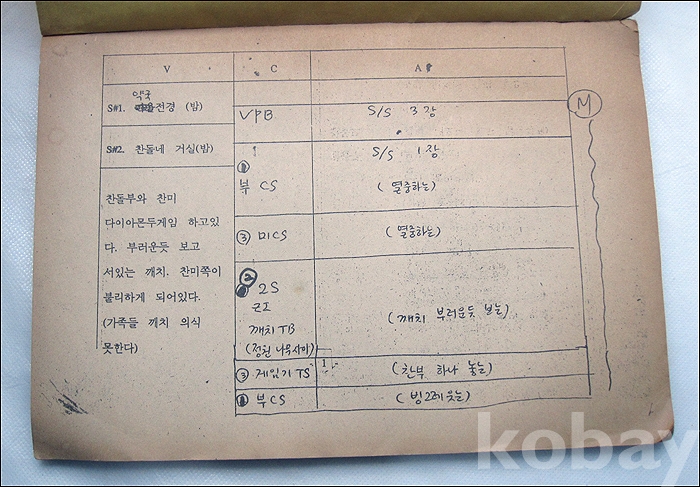 V C A
약국
S#1. 전경 (밤)
VPB S/S 3장
M
S#2. 찬돌네 거실(밤)
S/S 1장
① 부 CS (열중하는)
찬돌부와 찬미
다이아몬드게임 하고있
다. 부러운듯 보고
서있는 깨치. 찬미쪽이
불리하게 되어있다.
(가족들 깨치 의식
못한다)
③ 미CS (열중하는)
② 2S
깨치 TB (깨치 부러운듯 보는)
③ 게임기 TS (찬부 하나 놓는)
① 부CS
kobay